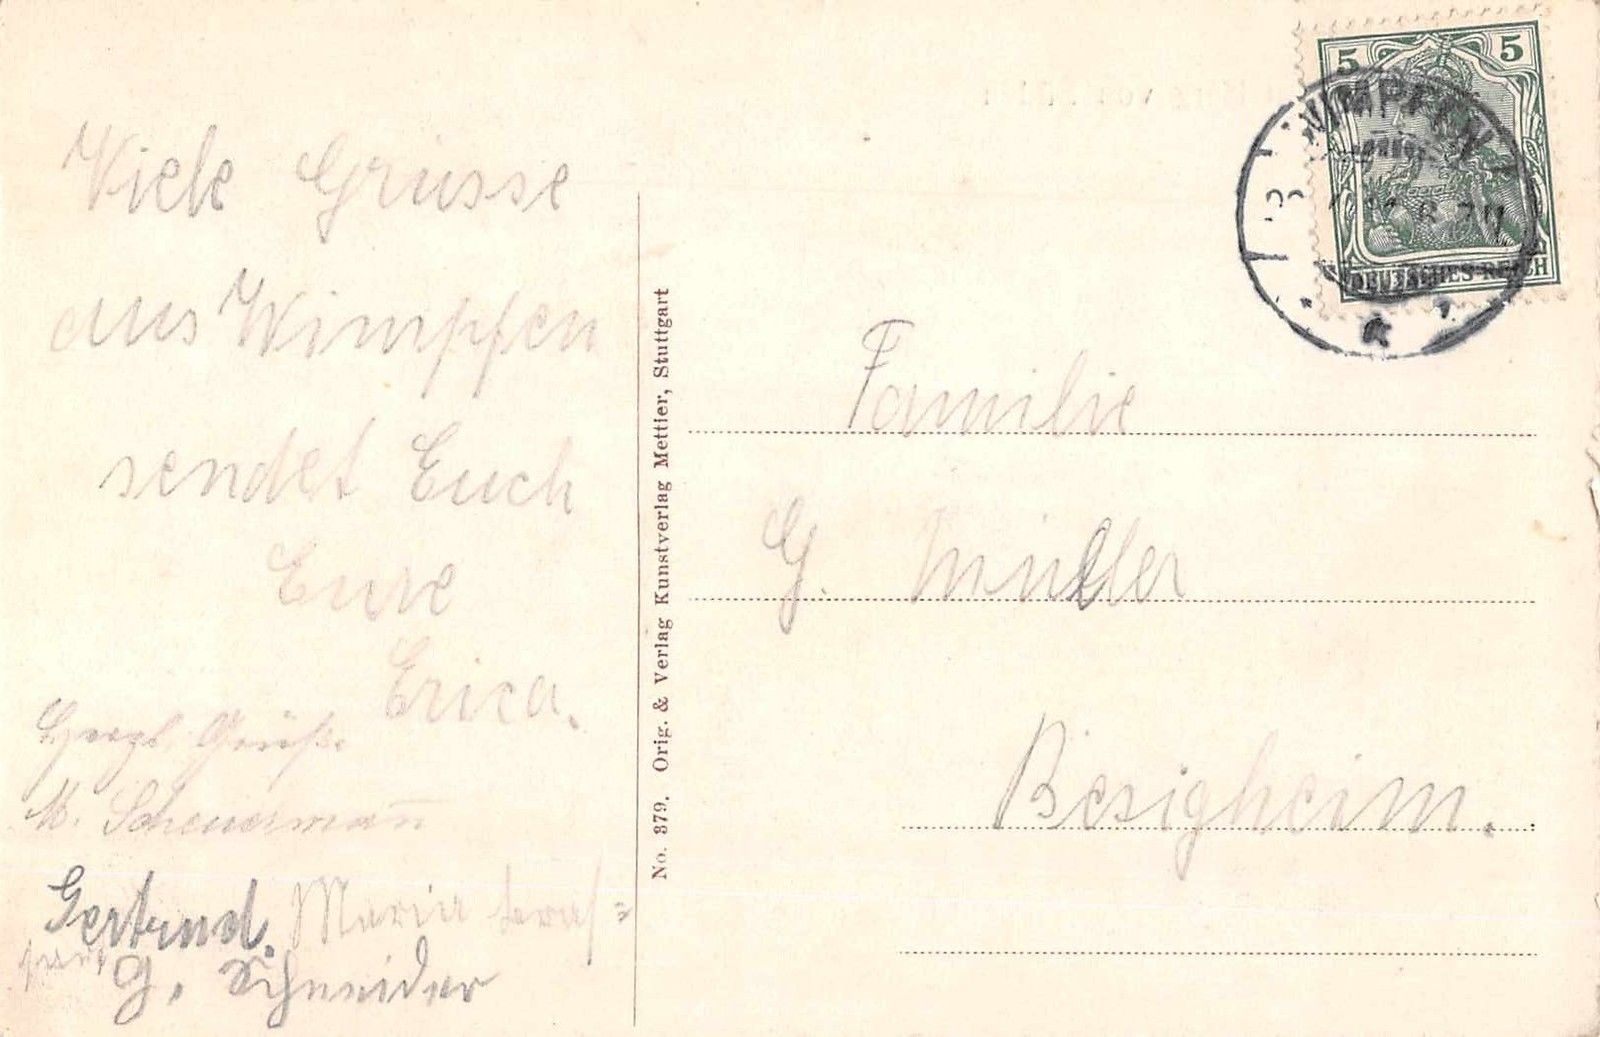 Viele Grüsse
aus Wimpfen
sendet Euch
Eure
Erica.
Herzl. Grüße
M. Scheuermañ
Gertrud. Maria
G. Schneider
No. 879. Orig. & Verlag Kunstverlag Mettler, Stuttgart
5 5
WIMPFEN
DEUTSCHES REICH
a
Familie
G. Müller
Besigheim.